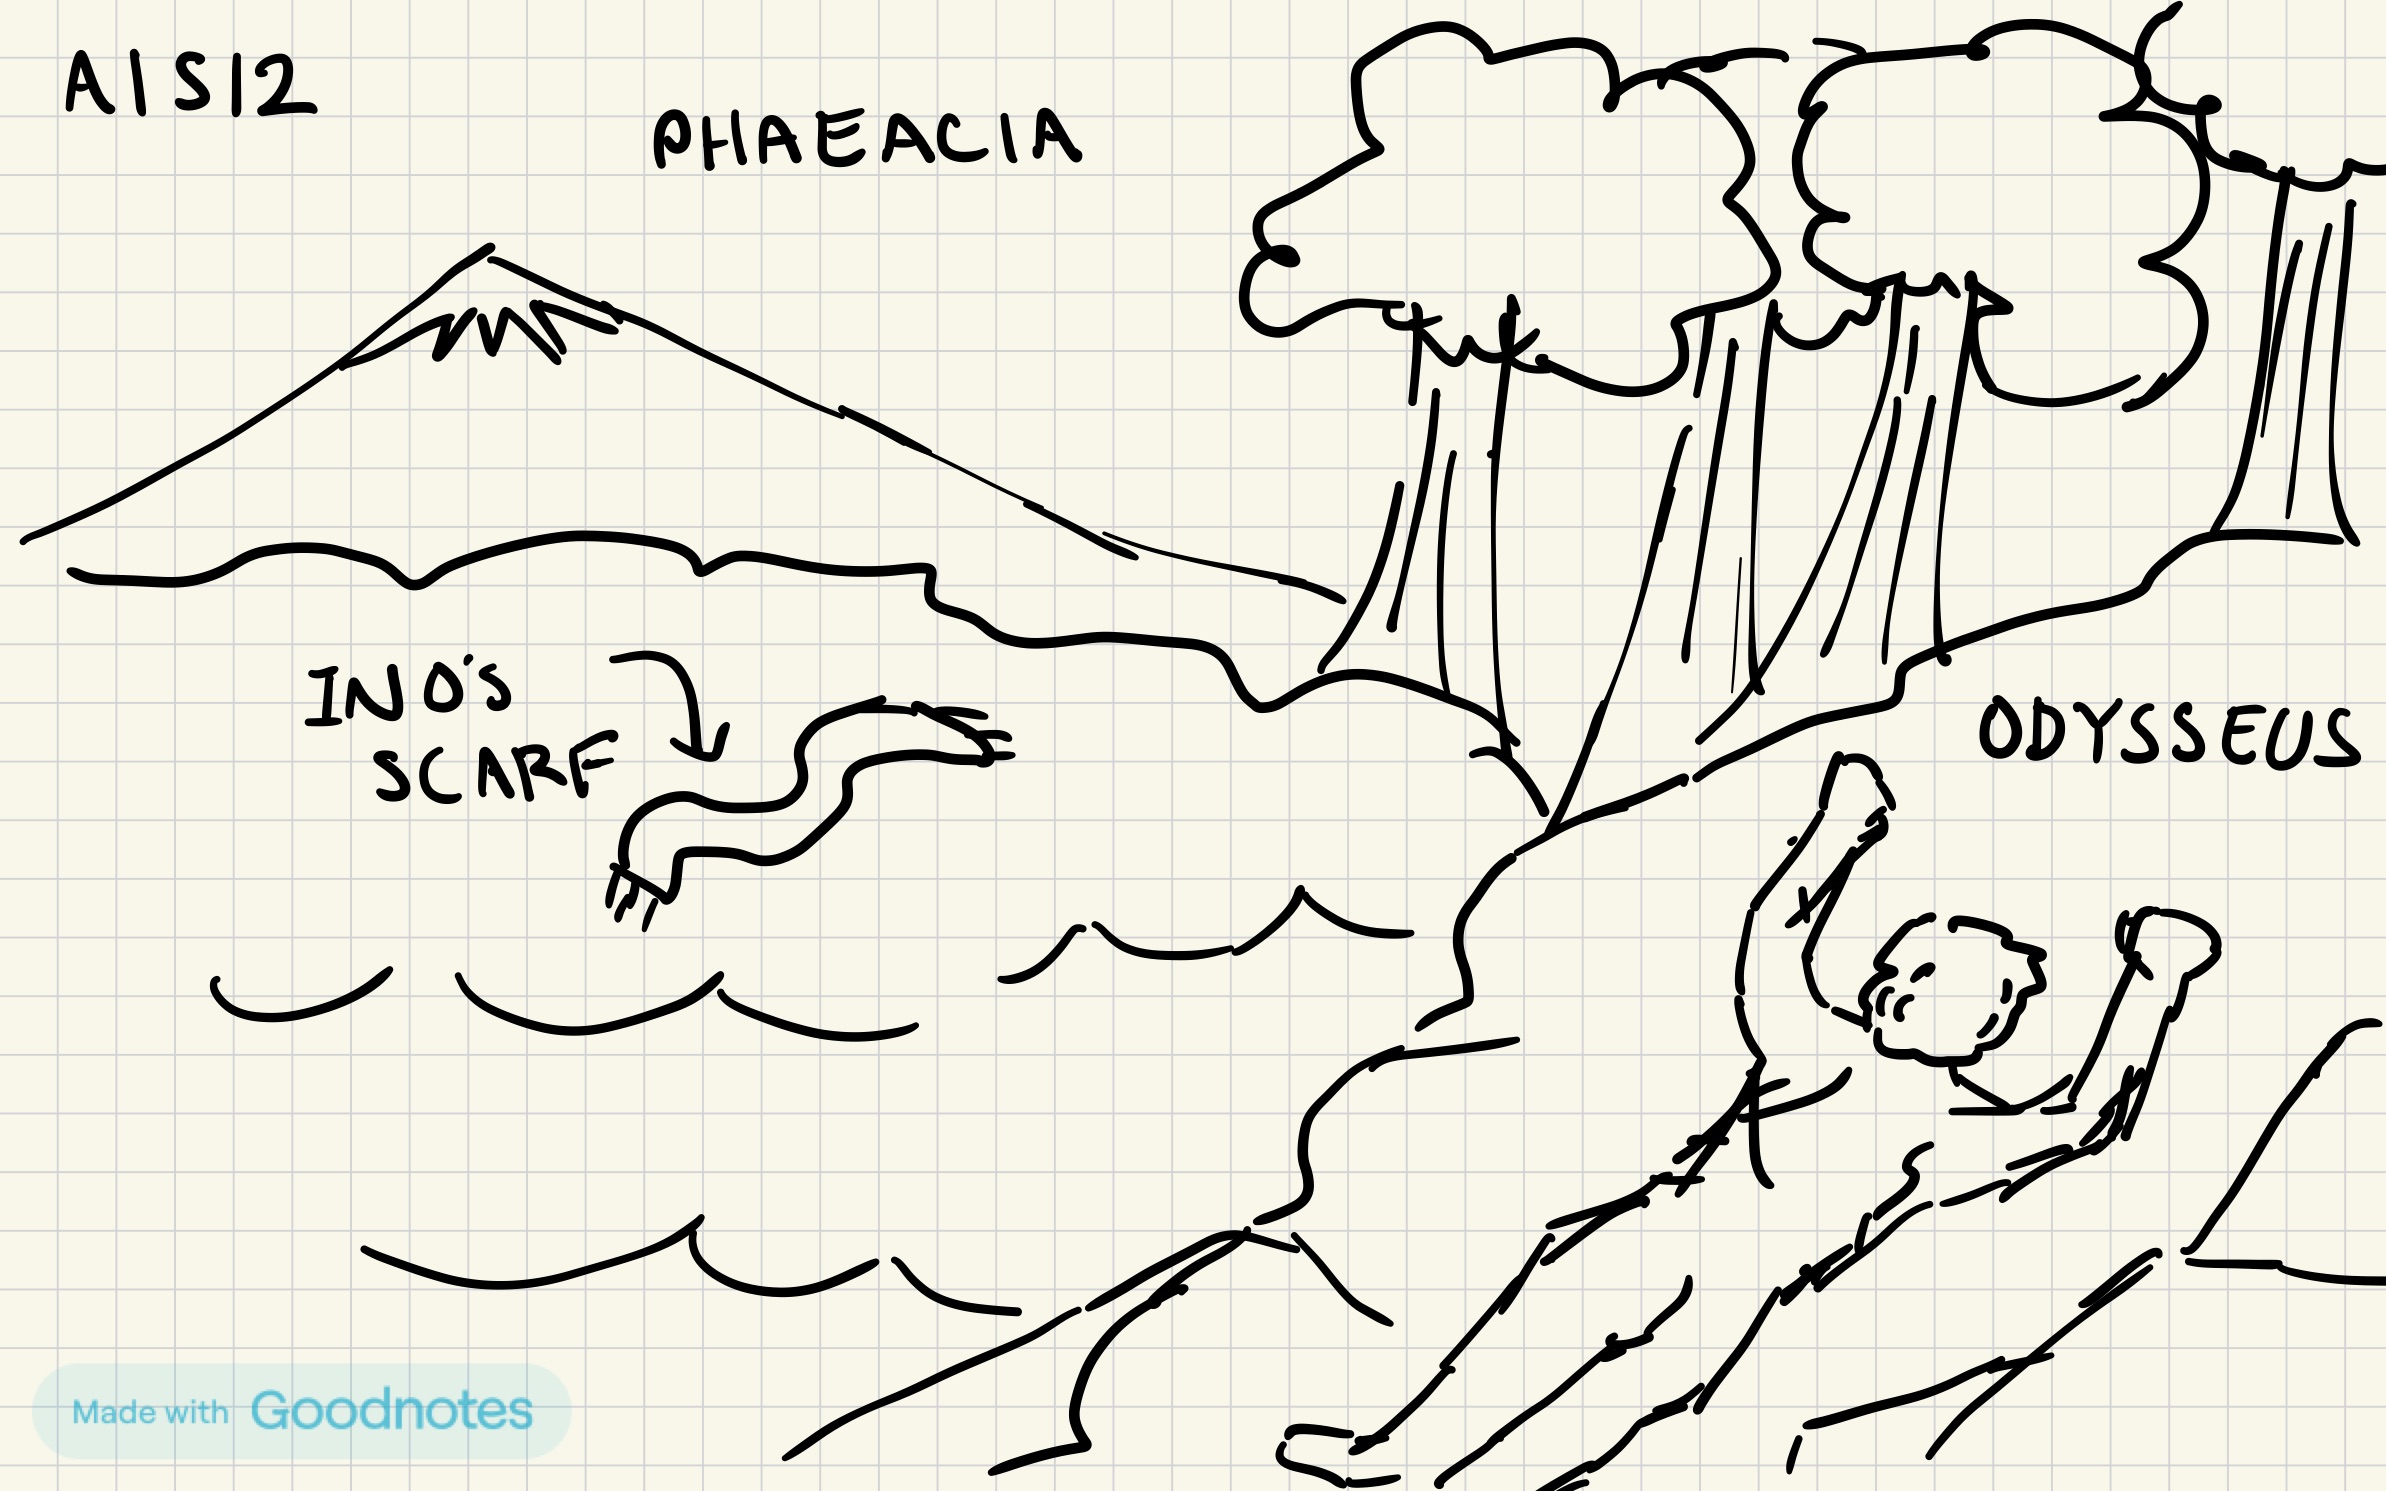 A1S12
PHAEACIA
INO'S
SCARF
ODYSSEUS
Made with Goodnotes